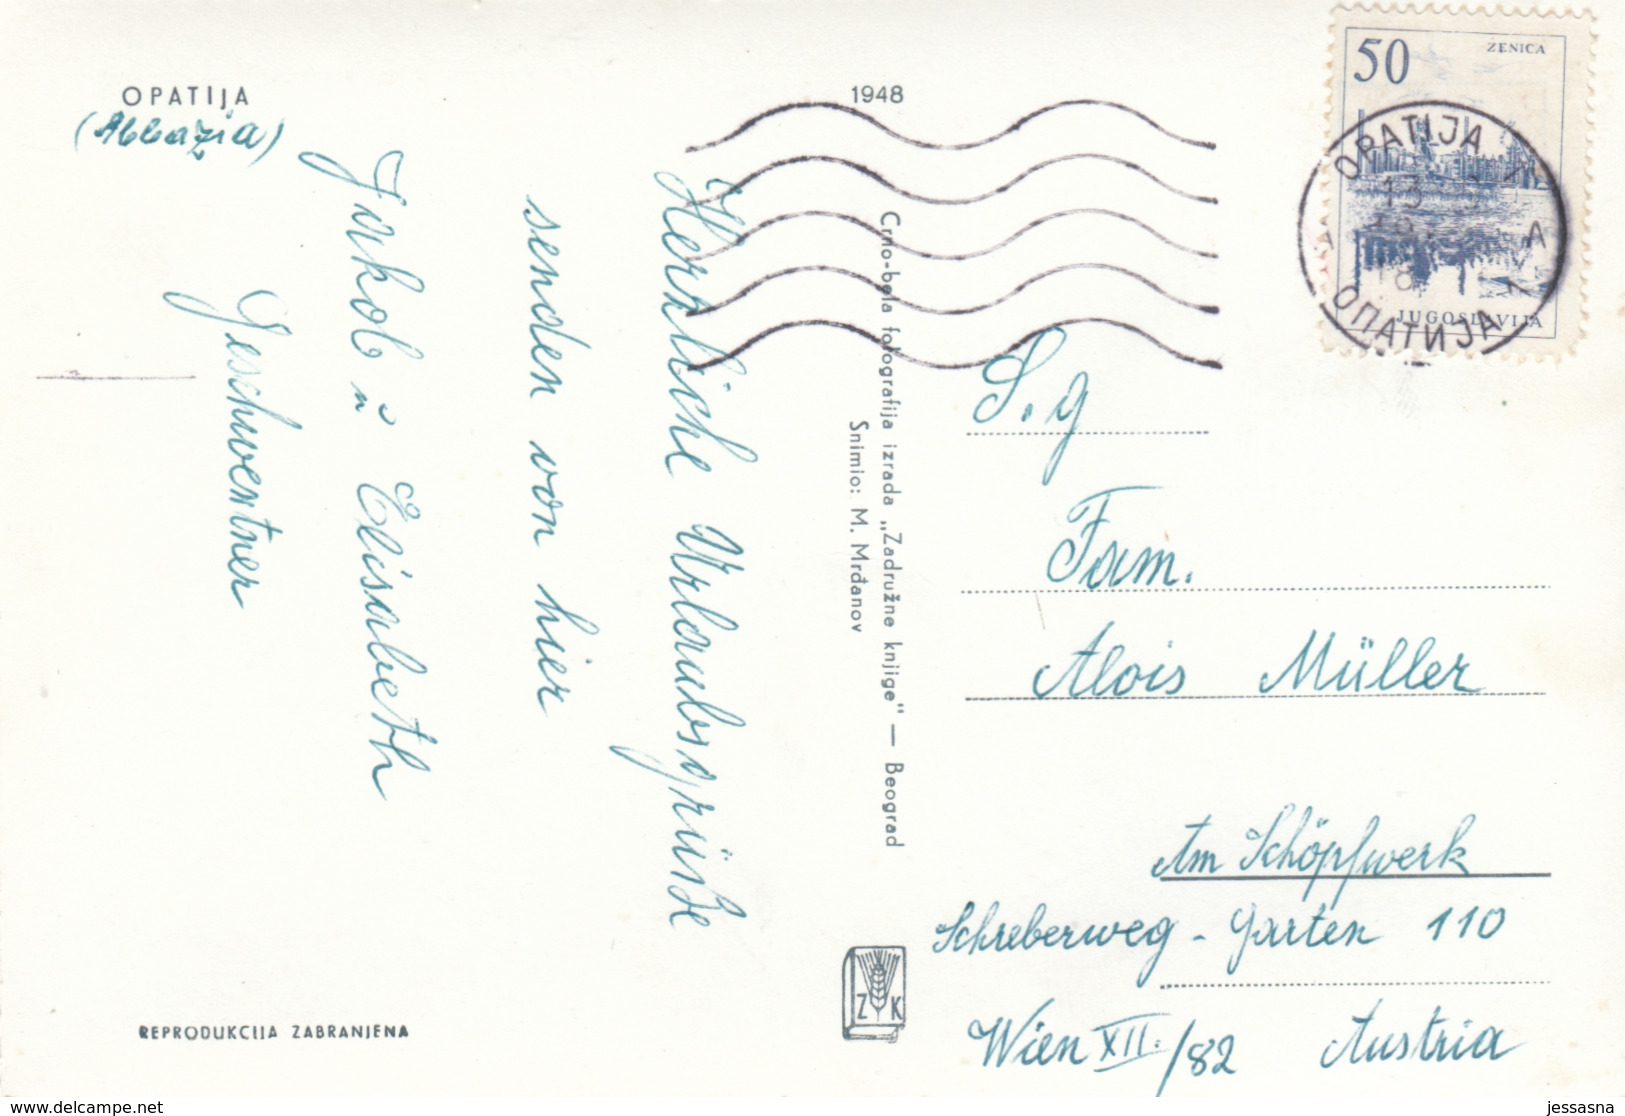 OPATIJA
(Abbazia)
1948
Herzliche Urlaubsgrüße
senden von hier
Jakob u. Elisabeth
Geschwentner
Crno-bela fotografija izrada „Zadružne knjige" — Beograd
Snimio: M. Mrđanov
Z K
REPRODUKCIJA ZABRANJENA
50
ZENICA
JUGOSLAVIJA
OPATIJA
13
18
A
ОПАТИЈА
S.g
Fam.
Alois Müller
Am Schöpfwerk
Schreberweg - Garten 110
Wien XII. /82 Austria
https://www.delcampe.net
jessasna